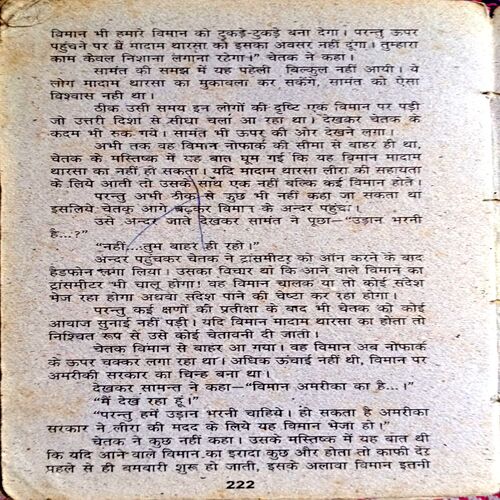 विमान भी हमारे विमान को टुकड़े-टुकड़े बना देगा। परन्तु ऊपर
पहुंचने पर मैं मादाम थारसा को इसका अवसर नहीं दूंगा। तुम्हारा
काम केवल निशाना लगाना रहेगा।” चेतक ने कहा।
सामंत की समझ में यह पहेली बिल्कुल नहीं आयी। ये
लोग मादाम थारसा का मुकाबला कर सकेंगे, सामंत को ऐसा
विश्वास नही था।
ठीक उसी समय इन लोगों की दृष्टि एक विमान पर पड़ी
जो उत्तरी दिशा से सीधा चला आ रहा था। देखकर चेतक के
कदम भी रुक गये। सामंत भी ऊपर की ओर देखने लगा।
अभी तक वह विमान नोफार्क की सीमा से बाहर ही था,
चेतक के मस्तिष्क में यह बात घूम गई कि यह विमान मादाम
थारसा का नहीं हो सकता। यदि मादाम थारसा लीरा की सहायता
के लिये आती तो उसके साथ एक नहीं बल्कि कई विमान होते।
परन्तु अभी ठीक से कुछ भी नहीं कहा जा सकता था
इसलिये चेतक आगे बढ़कर विमान के अन्दर पहुंचा।
उसे अन्दर जाते देखकर सामंत ने पूछा—“उड़ान भरनी
है...?”
“नहीं...तुम बाहर ही रहो।”
अन्दर पहुंचकर चेतक ने ट्रांसमीटर को ऑन करने के बाद
हैडफोन लगा लिया। उसका विचार था कि आने वाले विमान का
ट्रांसमीटर भी चालू होगा! वह विमान चालक या तो कोई संदेश
भेज रहा होगा अथवा संदेश पाने की चेष्टा कर रहा होगा।
परन्तु कई क्षणों की प्रतीक्षा के बाद भी चेतक को कोई
आवाज सुनाई नहीं पड़ी। यदि विमान मादाम थारसा का होता तो
निश्चित रूप से उसे कोई चेतावनी दी जाती।
चेतक विमान से बाहर आ गया। वह विमान अब नोफार्क
के ऊपर चक्कर लगा रहा था। अधिक ऊंचाई नहीं थी, विमान पर
अमरीकी सरकार का चिन्ह बना था।
देखकर सामन्त ने कहा—“विमान अमरीका का है...।”
“मैं देख रहा हूं।”
“परन्तु हमें उड़ान भरनी चाहिये। हो सकता है अमरीका
सरकार ने लीरा की मदद के लिये यह विमान भेजा हो।”
चेतक ने कुछ नहीं कहा। उसके मस्तिष्क में यह बात थी
कि यदि आने वाले विमान का इरादा कुछ और होता तो काफी देर
पहले से ही बमबारी शुरू हो जाती, इसके अलावा विमान इतनी
222